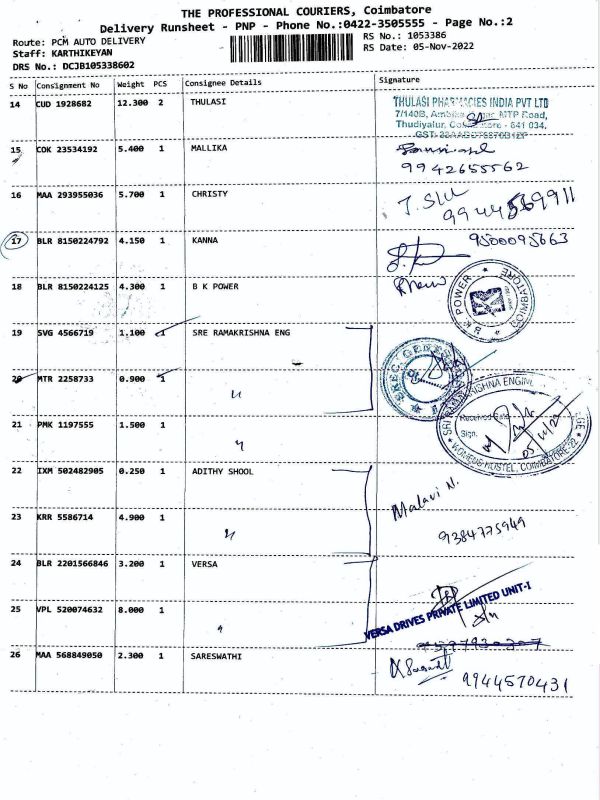 THE PROFESSIONAL COURIERS, Coimbatore
Delivery Runsheet - PNP - Phone No.:0422-3505555 - Page No.:2
Route: PCM AUTO DELIVERY
RS No.: 1053386
Staff: KARTHIKEYAN
RS Date: 05-Nov-2022
DRS No.: DCJB105338602
S No Consignment No Weight PCS Consignee Details Signature
14 CUD 1928682 12.300 2 THULASI
THULASI PHARMACIES INDIA PVT LTD
7/140B, MTP Road,
Thudiyalur, Coimbatore - 641 034.
15 COK 23534192 5.400 1 MALLIKA
9942655562
16 MAA 293955036 5.700 1 CHRISTY
17 BLR 8150224792 4.150 1 KANNA
18 BLR 8150224125 4.300 1 B K POWER
B K POWER COIMBATORE
19 SVG 4566719 1.100 1 SRE RAMAKRISHNA ENG
20 MTR 2258733 0.900 1 "
WOMENS HOSTEL, COIMBATORE-22
Sign.
05/11/22
21 PMK 1197555 1.500 1 "
22 IXM 502482905 0.250 1 ADITHY SHOOL
Malavi N.
23 KRR 5586714 4.900 1 "
9384775949
24 BLR 2201566846 3.200 1 VERSA
VERSA DRIVES PRIVATE LIMITED UNIT-I
25 VPL 520074632 8.000 1 "
26 MAA 568849050 2.300 1 SARESWATHI
9944570431